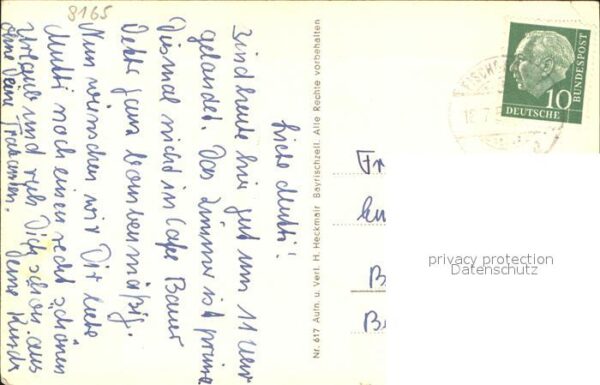 8165
Liebe Mutti!
Sind heute hier gut um 11 Uhr
gelandet. Das Zimmer ist prima
Diesmal nicht im Cafe Bauer
Dafür ganz
Nun wünschen wir Dir liebe
Mutti noch einen recht schönen
Urlaub und ruh Dich schön aus
ohne Deine Trabanten.
Deine Kinder
Nr. 617 Aufn. u. Verl. H. Heckmair Bayrischzell. Alle Rechte vorbehalten
DEUTSCHE BUNDESPOST
10
Fr
B
B
privacy protection
Datenschutz